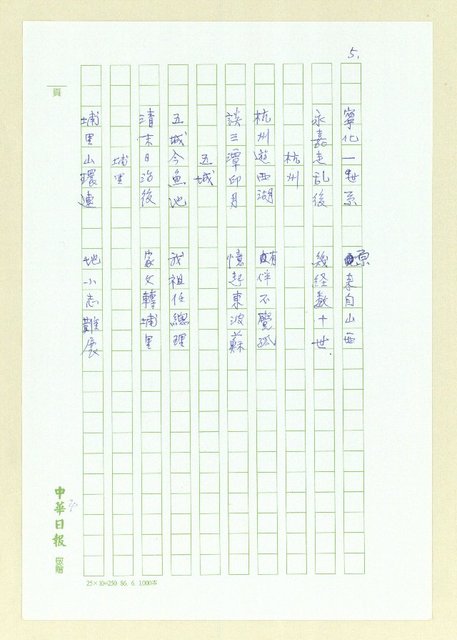 5.
寧化一世系　原來自山西
永嘉走乱後　幾经數十世.
杭州
杭州遊西湖　有伴不覺孤
談三潭卯月　憶起東波蘇
五城
五城今魚池　我祖任總理
清末日治後　家父轉埔里
埔里
埔里山環邊　地小志難展
頁
中華日報
25×10=250 56. 6. 1000本